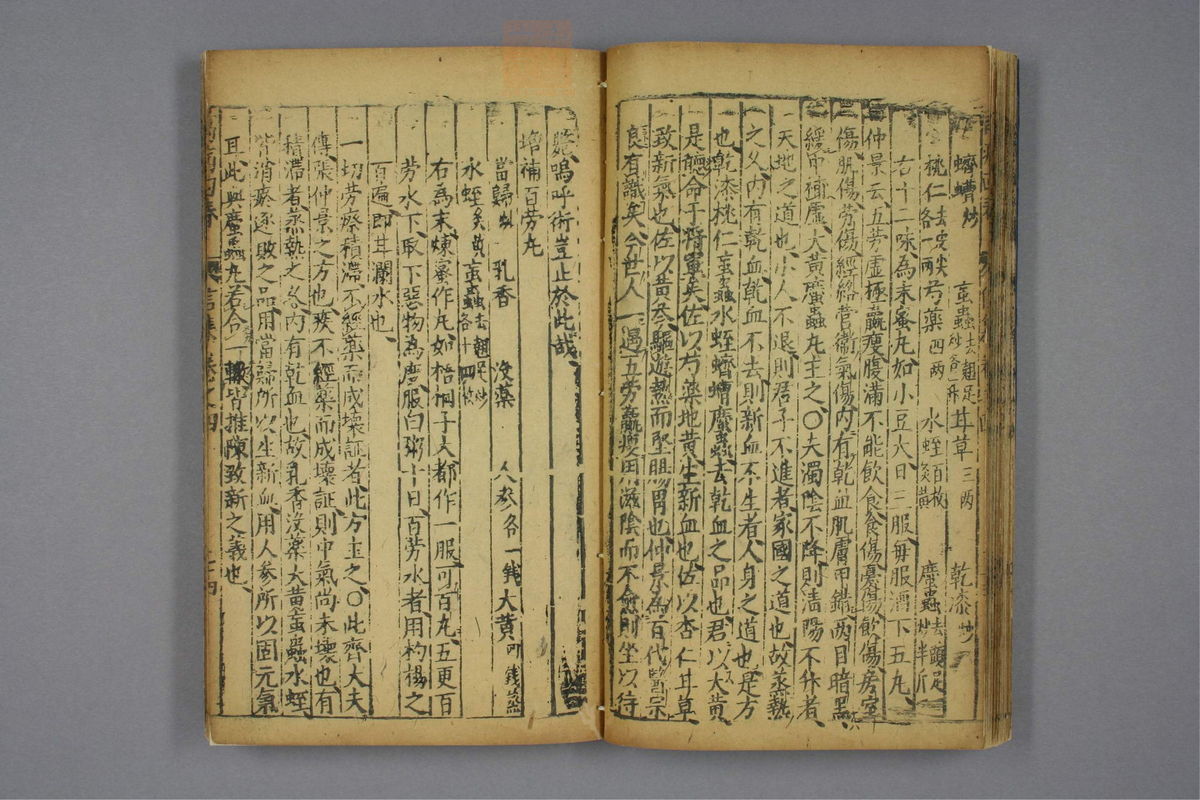 蠐螬炒 䖟蟲去翅足炒各一升 甘草三两 乾漆炒
桃仁去皮尖各一两 芍藥四两 水蛭百枚炙黄 䗪蟲去頭足炒半斤
右十二味為末蜜丸如小豆大日三服每服酒下五丸
仲景云五劳虛極羸瘦腹滿不能飲食食傷憂傷飲傷房室
傷肌傷劳傷經絡营衛氣傷内有乾血肌膚甲錯两目暗黑
緩中補虛大黄䗪蟲丸主之〇夫濁陰不降則清陽不升者
天地之道也小人不退則君子不進者家國之道也故蒸熱
之久内有乾血乾血不去則新血不生者人身之道也是方
也乾漆桃仁䖟蟲水蛭蠐螬䗪蟲去乾血之品也君以大黄
是聽命于將軍矣佐以芍藥地黄生新血也佐以杏仁甘草
致新氣也佐以黄芩驅遊熱而堅腸胃也仲景為百代醫宗
良有識矣今世人一遇五劳羸瘦用滋陰而不愈則坐以待
斃嗚呼術豈止於此哉
增補百劳丸
當歸炒 乳香 没藥 人參各一錢 大黄四錢蒸
水蛭炙黄 䖟蟲去翅足炒各十四枚
右為末煉蜜作丸如梧桐子大都作一服可百丸五更百
劳水下取下惡物為度服白粥十日百劳水者用杓揚之
百遍即甘瀾水也
一切劳瘵積滯不經藥而成壊証者此方主之〇此齊大夫
傳張仲景之方也疾不經藥而成壊証則中氣尚未壊也有
積滯者蒸熱之久内有乾血也故乳香没藥大黄䖟蟲水蛭
皆消瘀逐敗之品用當歸所以生新血用人參所以固元氣
耳此與䗪蟲丸若合一轍皆推陳致新之義也